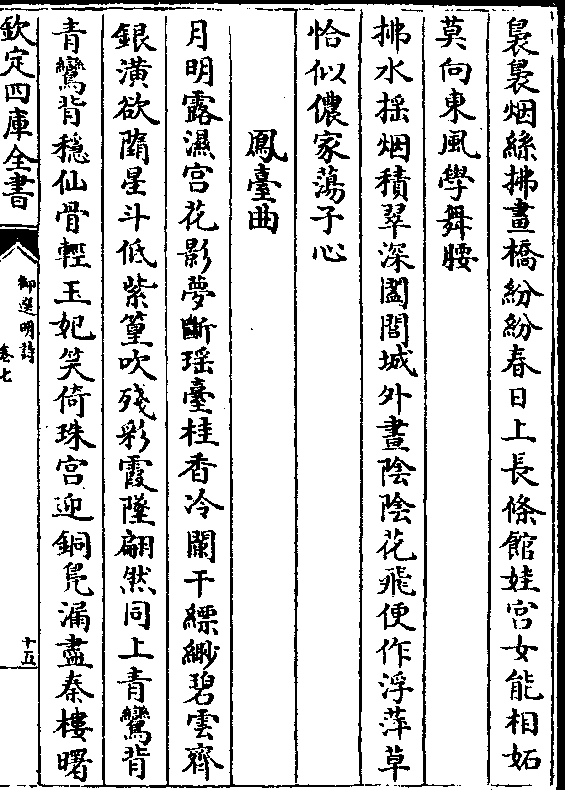 裊裊烟絲拂畫橋紛紛春日上長條館娃宫女能相妬
莫向東風學舞腰
拂水揺烟積翠深闔閭城外晝陰陰花飛便作浮萍草
恰似儂家蕩子心
鳳臺曲
月明露濕宫花影夢斷瑶臺桂香冷闌干縹緲碧雲齊
銀潢欲墮星斗低紫篁吹殘彩霞墜翩然同上青鸞背
青鸞背穩仙骨輕玉妃笑倚珠宫迎銅鳬漏盡秦樓曙
欽定四庫全書
御選明詩
卷七
十五